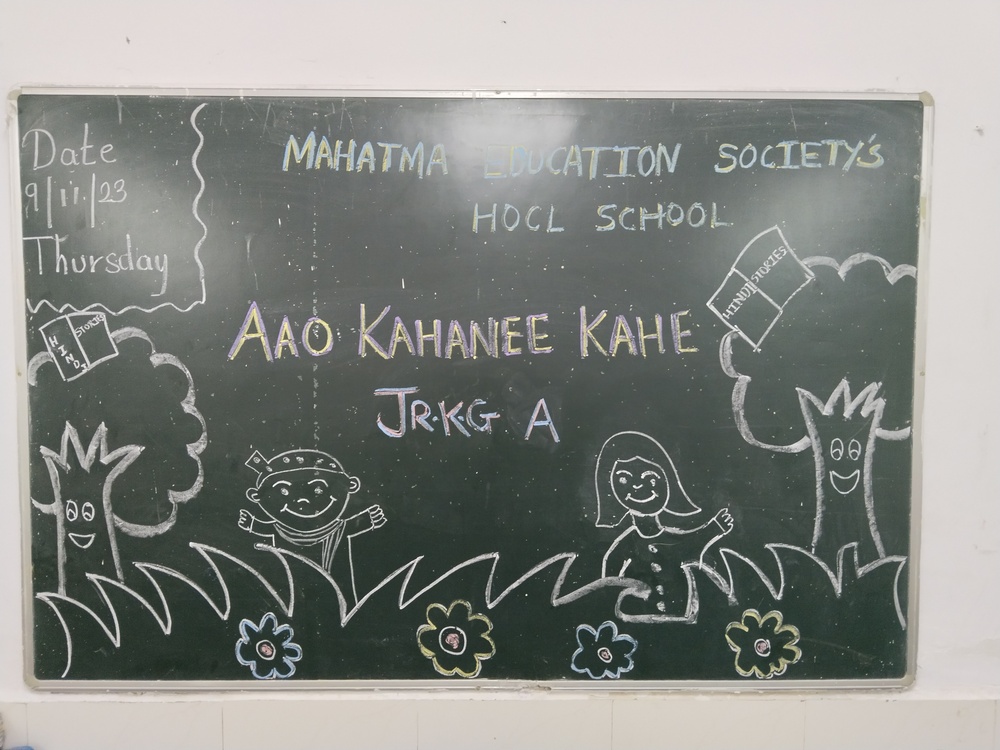 Date
9/11/23
Thursday
MAHATMA EDUCATION SOCIETY'S
HOCL SCHOOL
AAO KAHANEE KAHE
JR.K.G A
HINDI STORIES
HINDI STORIES